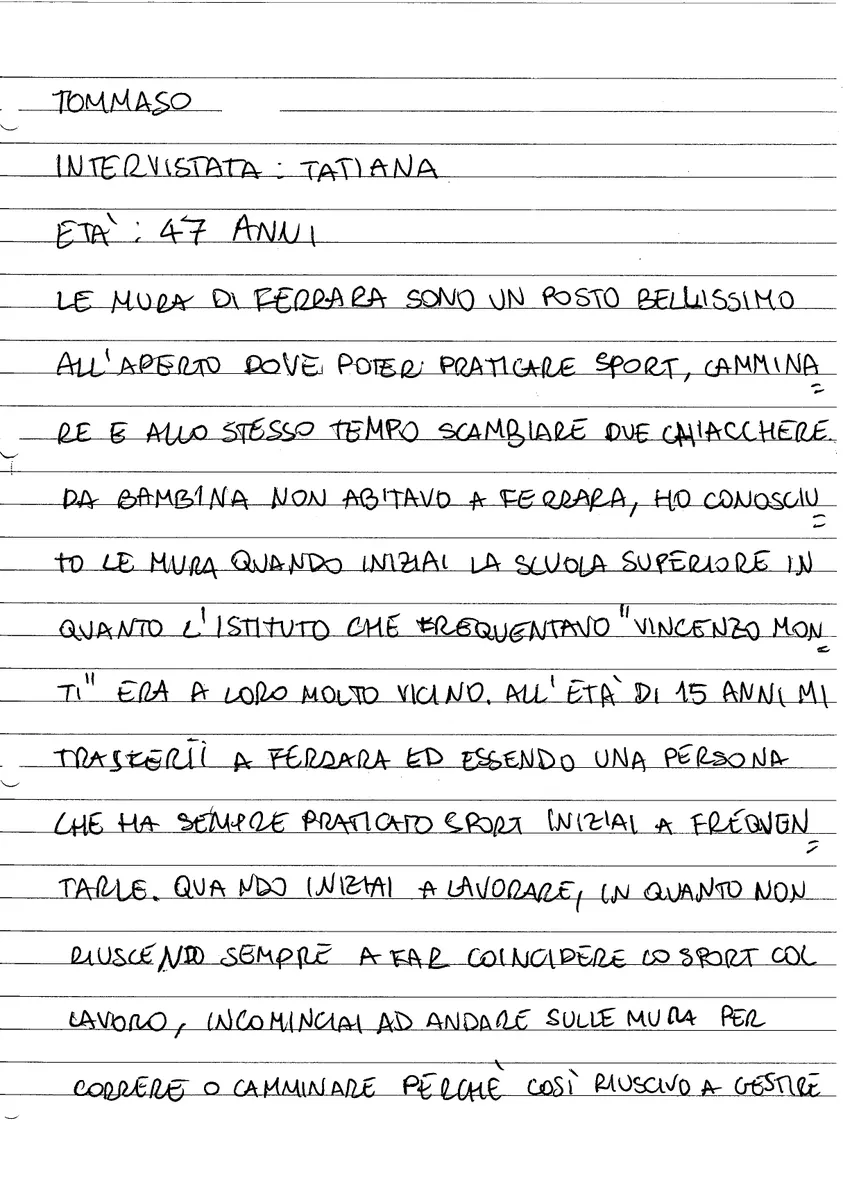 TOMMASO
INTERVISTATA : TATIANA
ETÀ : 47 ANNI
LE MURA DI FERRARA SONO UN POSTO BELLISSIMO
ALL'APERTO DOVE POTER PRATICARE SPORT, CAMMINA=
RE E ALLO STESSO TEMPO SCAMBIARE DUE CHIACCHERE.
DA BAMBINA NON ABITAVO A FERRARA, HO CONOSCIU=
TO LE MURA QUANDO INIZIAI LA SCUOLA SUPERIORE IN
QUANTO L'ISTITUTO CHE FREQUENTAVO "VINCENZO MON=
TI" ERA A LORO MOLTO VICINO. ALL'ETÀ DI 15 ANNI MI
TRASFERII A FERRARA ED ESSENDO UNA PERSONA
CHE HA SEMPRE PRATICATO SPORT INIZIAI A FREQUEN=
TARLE. QUANDO INIZIAI A LAVORARE, IN QUANTO NON
RIUSCENDO SEMPRE A FAR COINCIDERE LO SPORT COL
LAVORO, INCOMINCIAI AD ANDARE SULLE MURA PER
CORRERE O CAMMINARE PERCHÈ COSÌ RIUSCIVO A GESTIRE